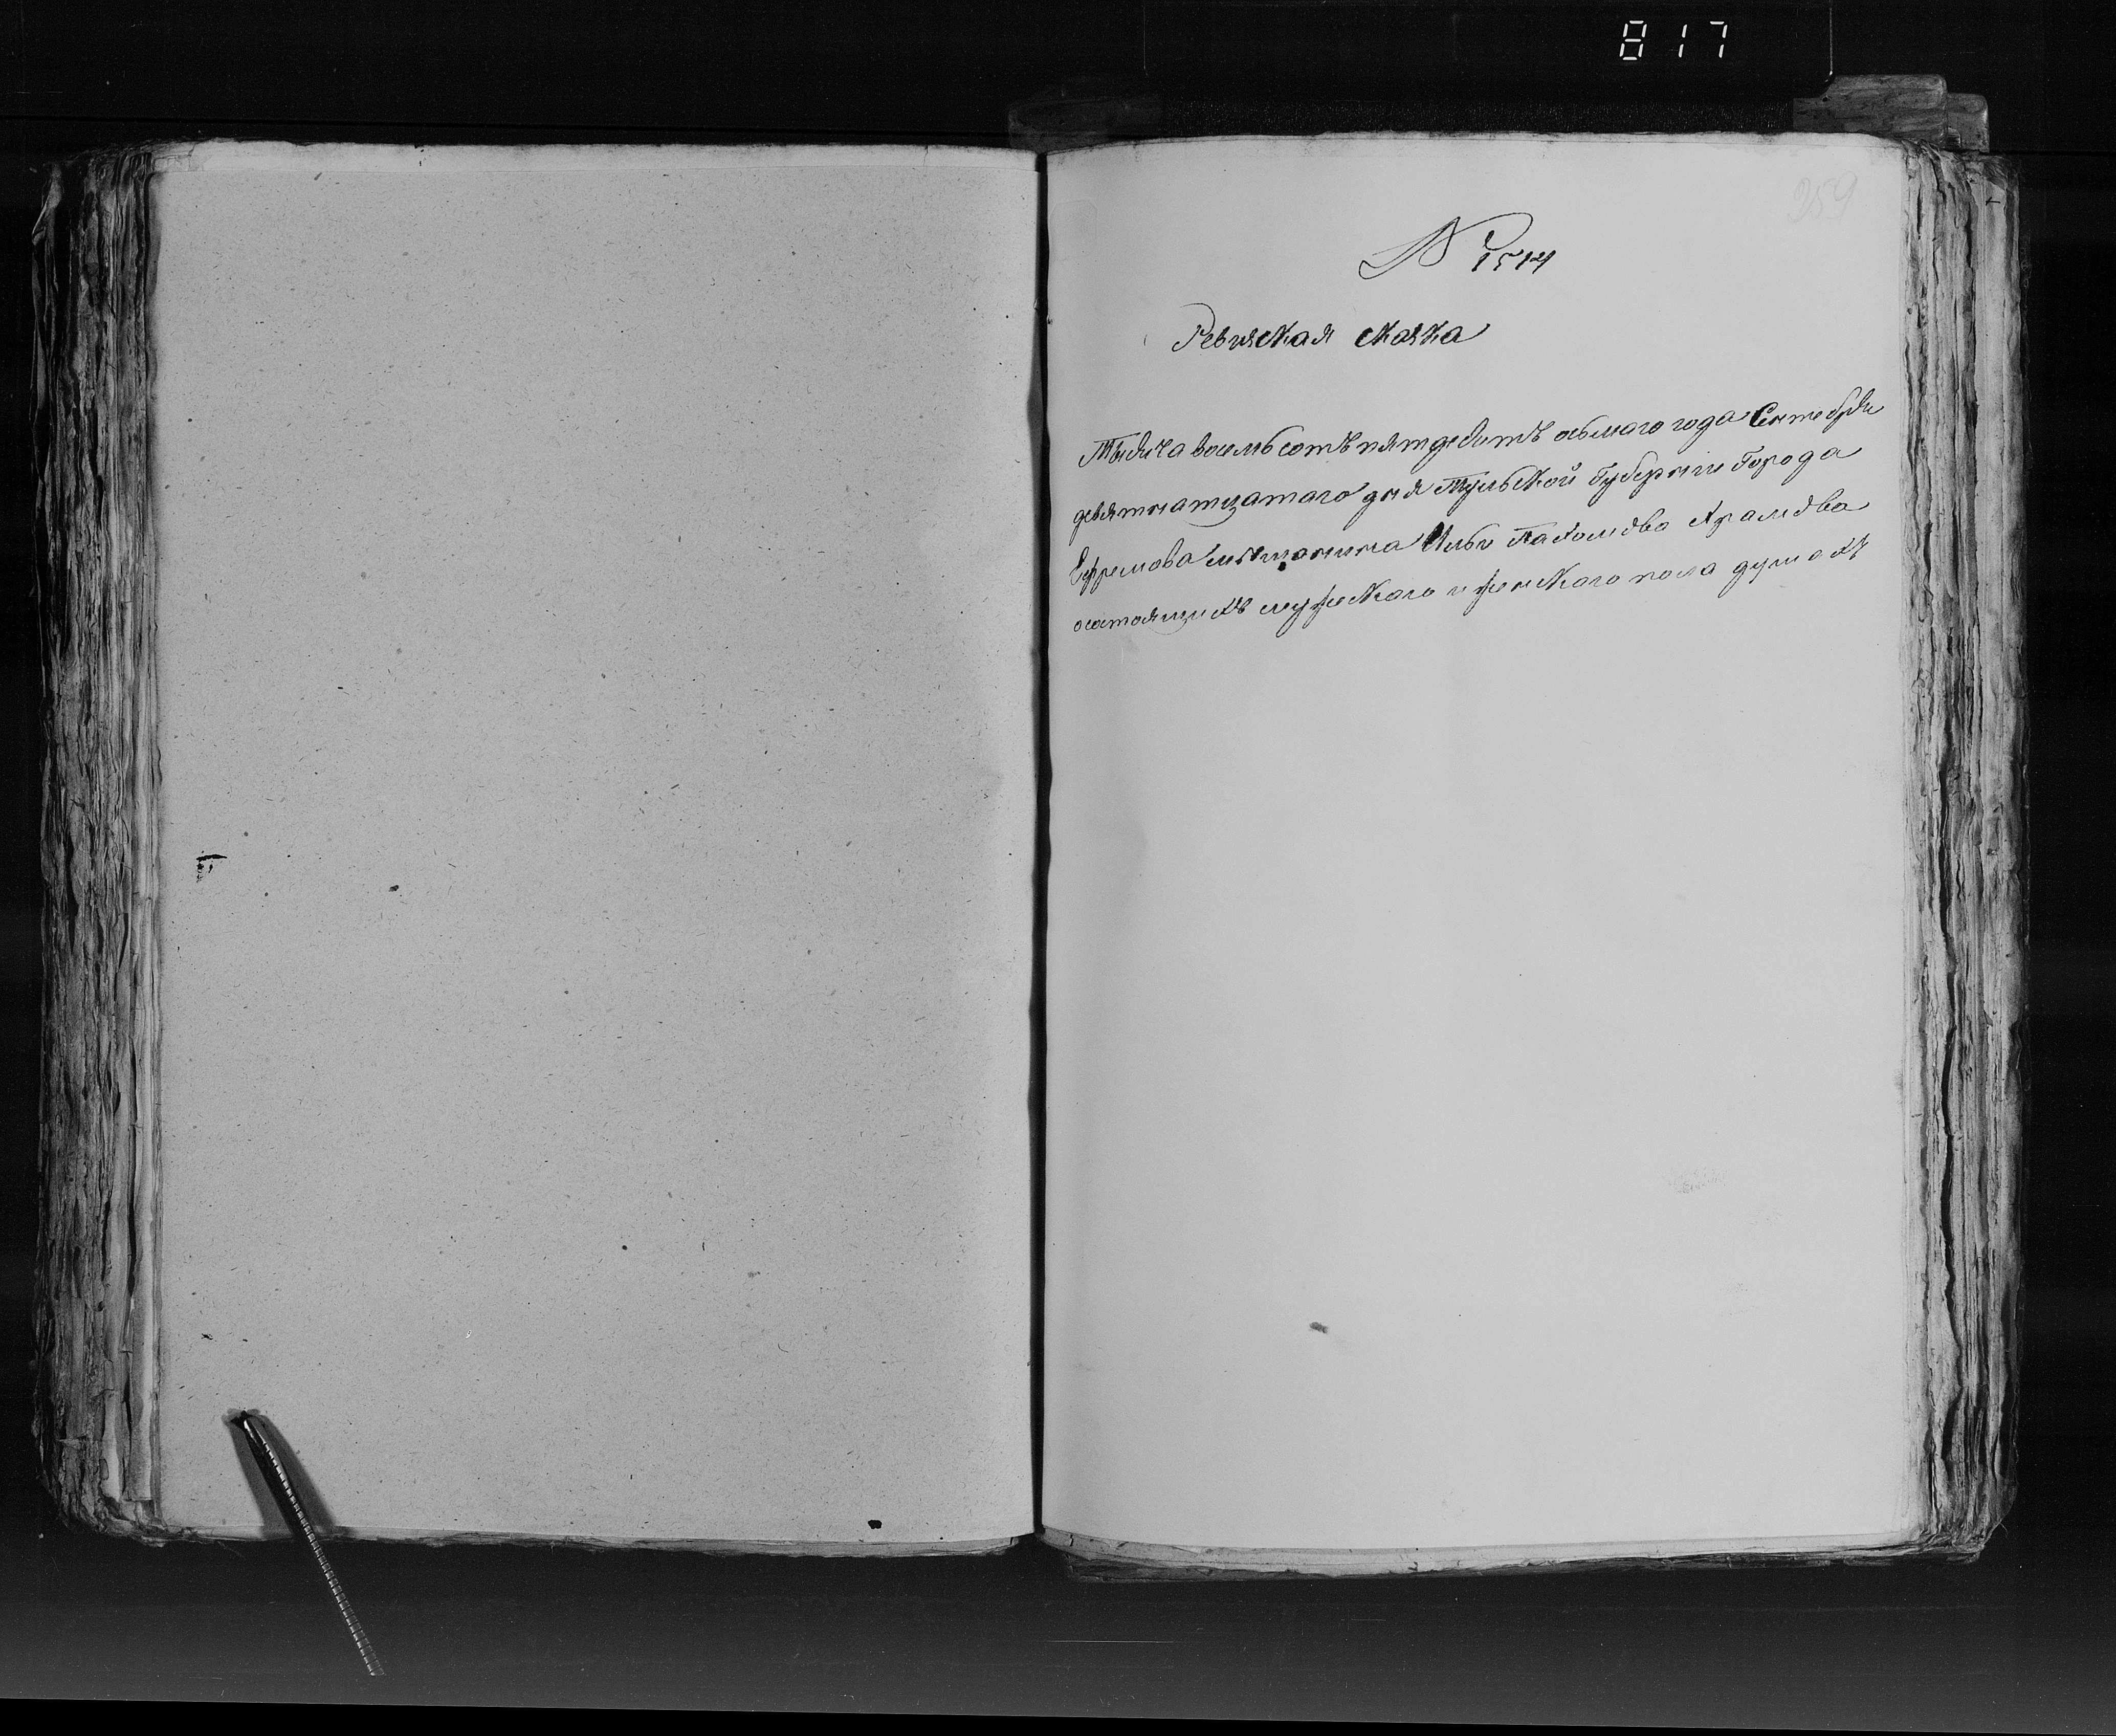 817
259
N 1514
Ревизская скаska
Тысяча восемьсотъ пятдесятъ осьмаго года Сентебря
девятнатцатаго дня Тульской Губернии Города
Ефремова мѣщанина Ильи Пахомова Храмова
осотоящихъ мужескаго и женскаго пола душахъ